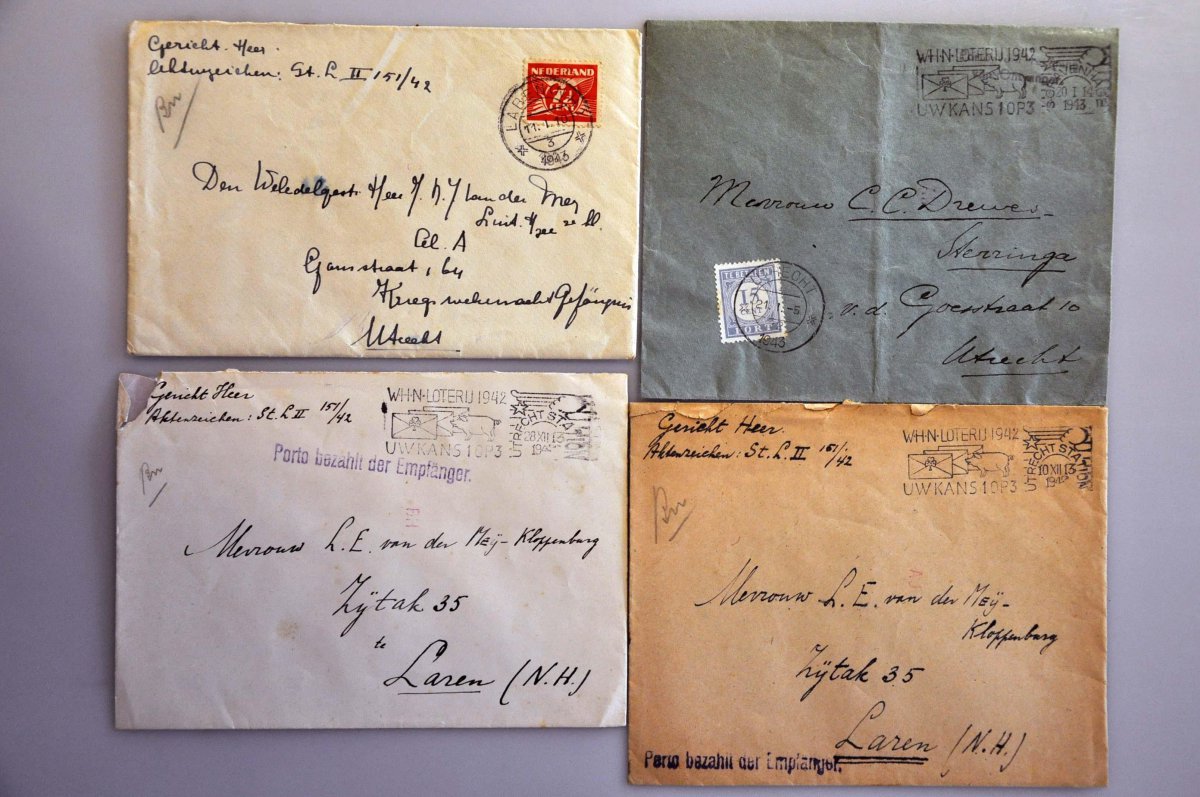 Gericht Heer.
Aktenzeichen: St. L. II 151/42
Bn
NEDERLAND
7½
CENT
LABEN
11.1.
3
1943
Den Weledelgestr. Heer J. N. J van der Mey
Luit. t/zee 2e kl.
Cel. A
Gansstraat, 64
Kriegswehrmacht Gefängnis
Utrecht
WHN-LOTERIJ 1942
UW KANS 1 OP 3
STATION
20 I 14
1943
Mevrouw C. C. Drewes-
Sterringa
v. d. Goesstraat 10
Utrecht
TE BETALEN
15
CENT
PORT
UTRECHT
1943
Gericht Heer
Aktenzeichen: St. L. II 151/42
Bn
WHN-LOTERIJ 1942
UW KANS 1 OP 3
UTRECHT STATION
28 XII 13
194
Porto bezahlt der Empfänger.
Mevrouw L. E. van der Meÿ-Kloppenburg
Zÿtak 35
te
Laren (N.H.)
Gericht Heer.
Aktenzeichen: St. L. II 151/42
Bn
WHN-LOTERIJ 1942
UW KANS 1 OP 3
UTRECHT STATION
10 XII 13
194
Mevrouw L. E. van der Meÿ-
Kloppenburg
Zÿtak 35
Laren (N.H.)
Porto bezahlt der Empfänger.